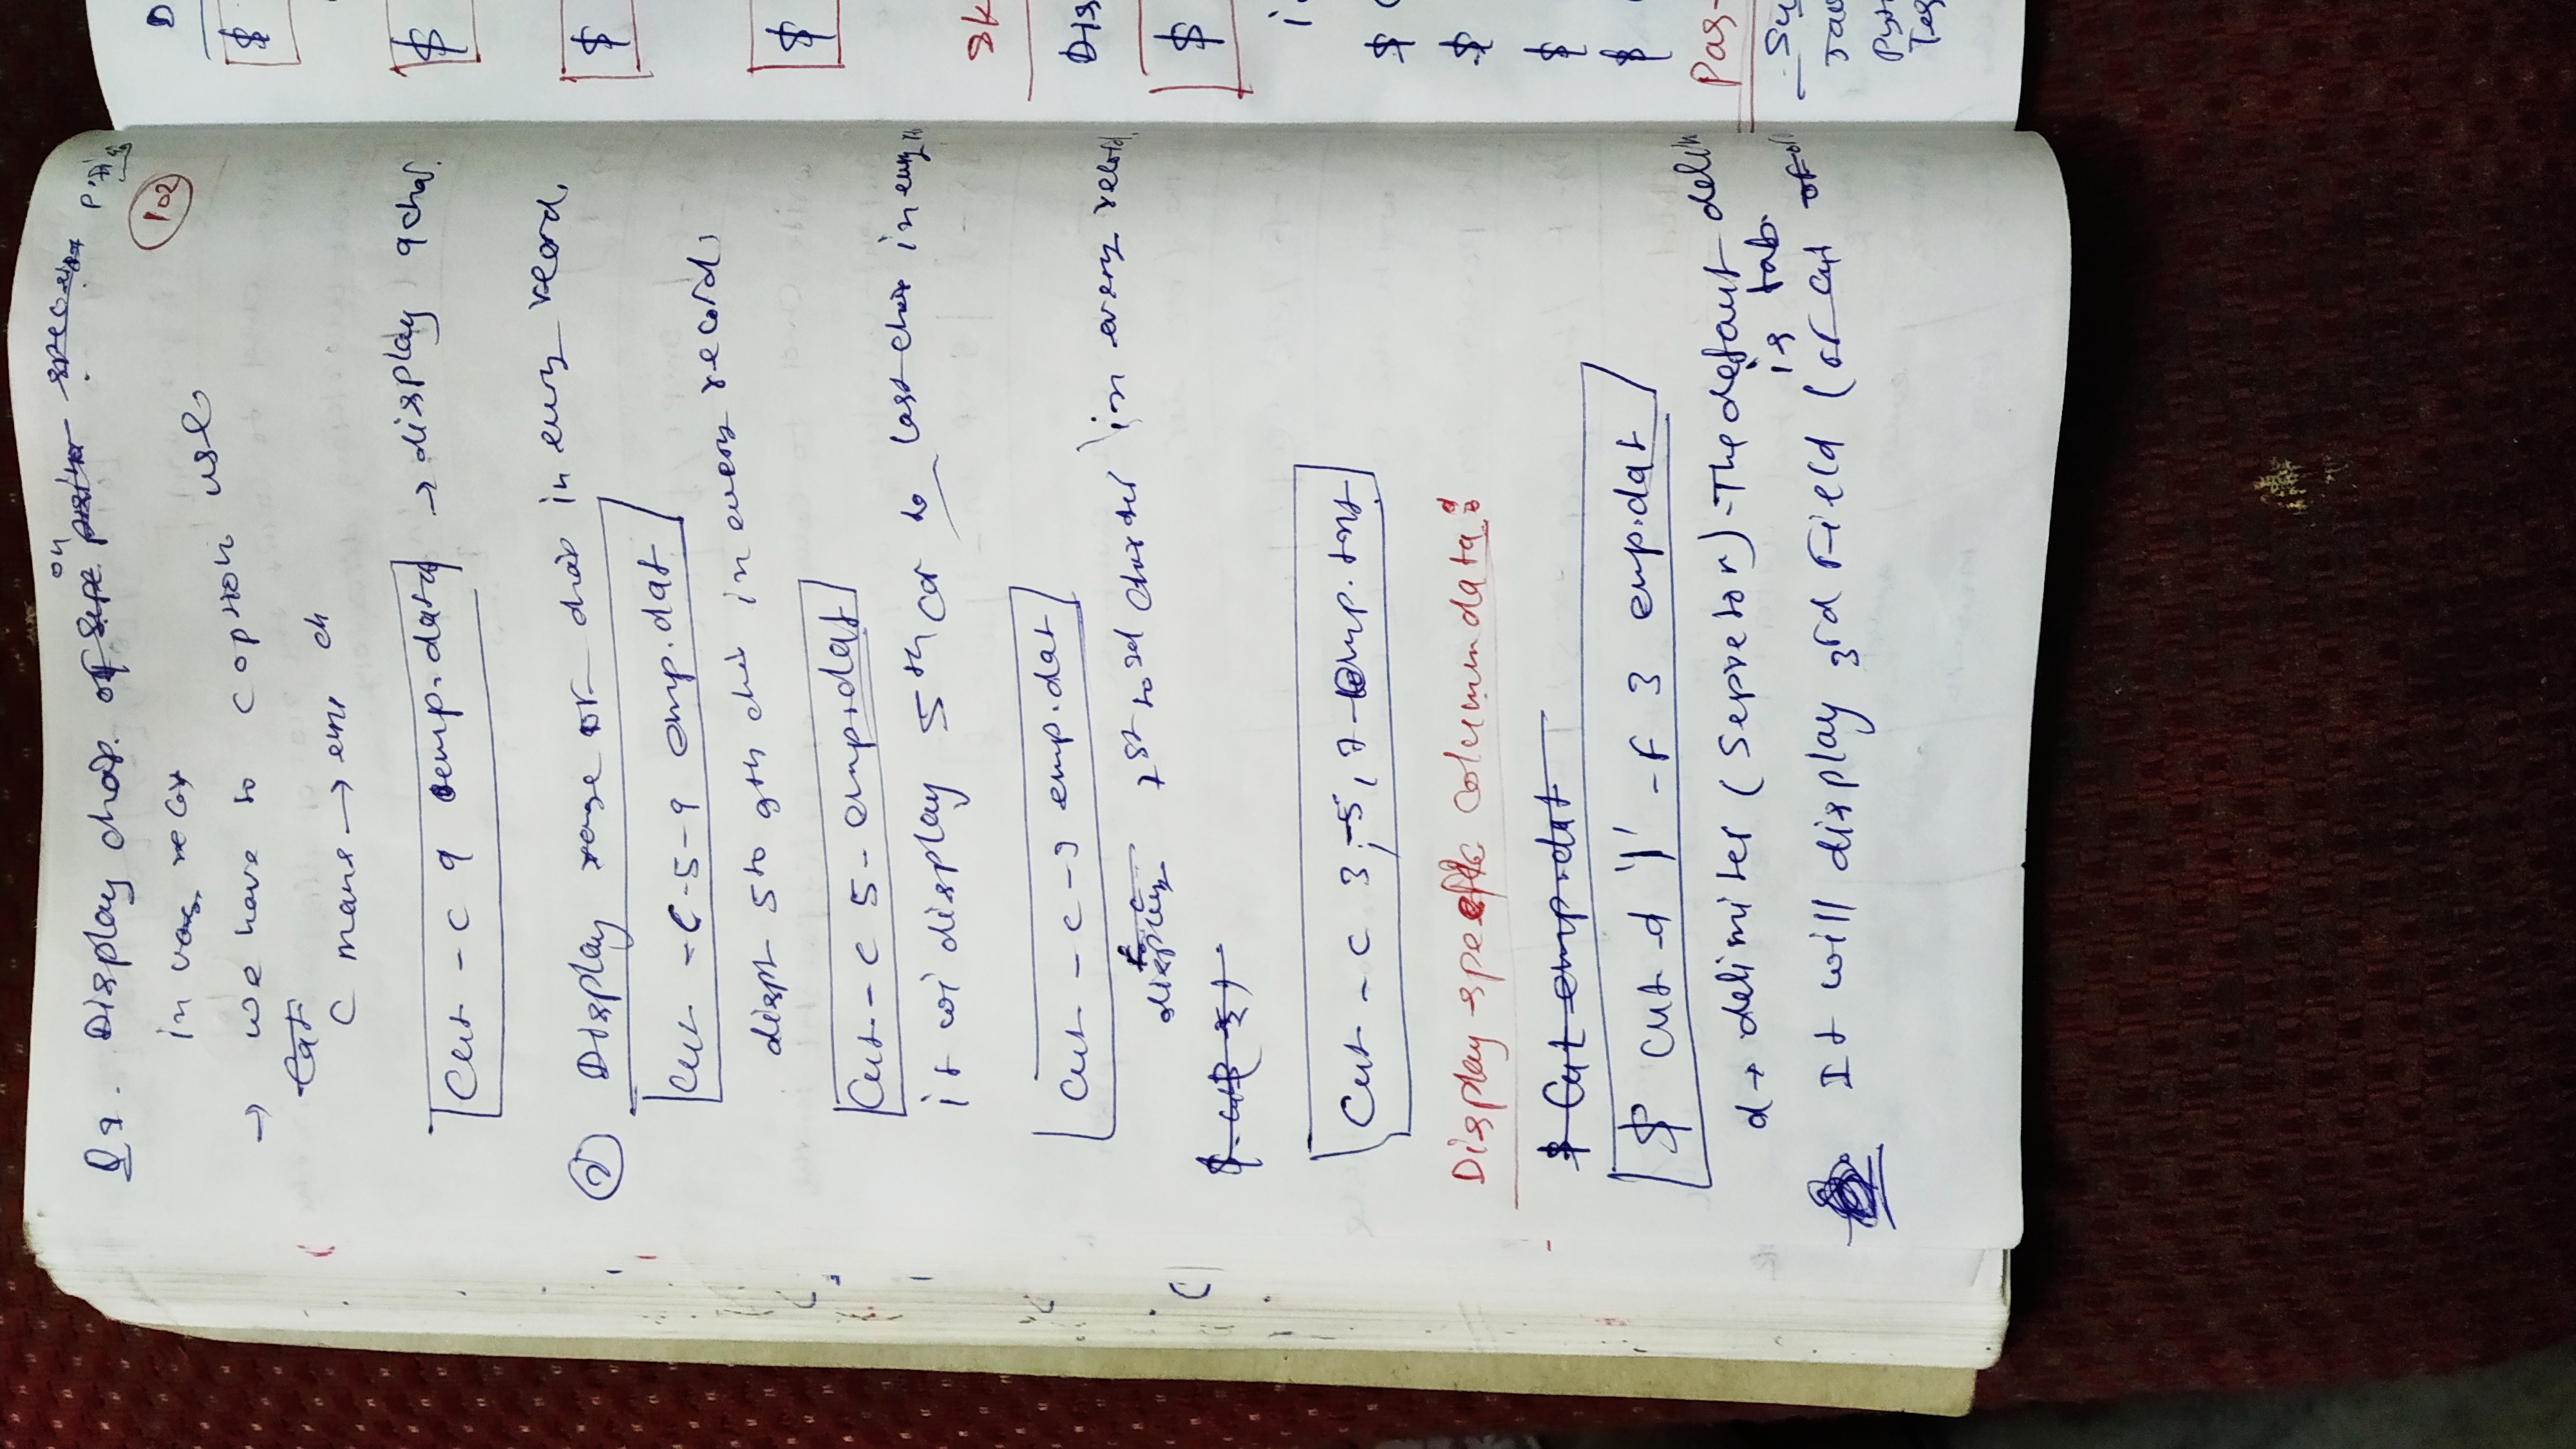 Q1. Display char. on position
102
in
→ we have to c option use
c mans →
Cut - c 9 emp.data → display 9 char.
② Display rage of char in every record.
Cut -c-5-9 emp.dat
displ 5 to 9th cha in every record,
Cut - c 5- emp.dat
it wi display 5th car to last char in every
Cut -c -3 emp.dat
display 1st to 3d in every record.
Cut -c 3,-5,7- emp.txt
Display specific column data:
$ Cut emp.dat
$ Cut -d '|' -f 3 emp.dat
d → delimiter (Sepretor) - The defaut delim
is tab.
It will display 3rd Field (or
D
$
$
$
$
Dis
$
$
$
$
$
Pas-
Su
Py
Tes